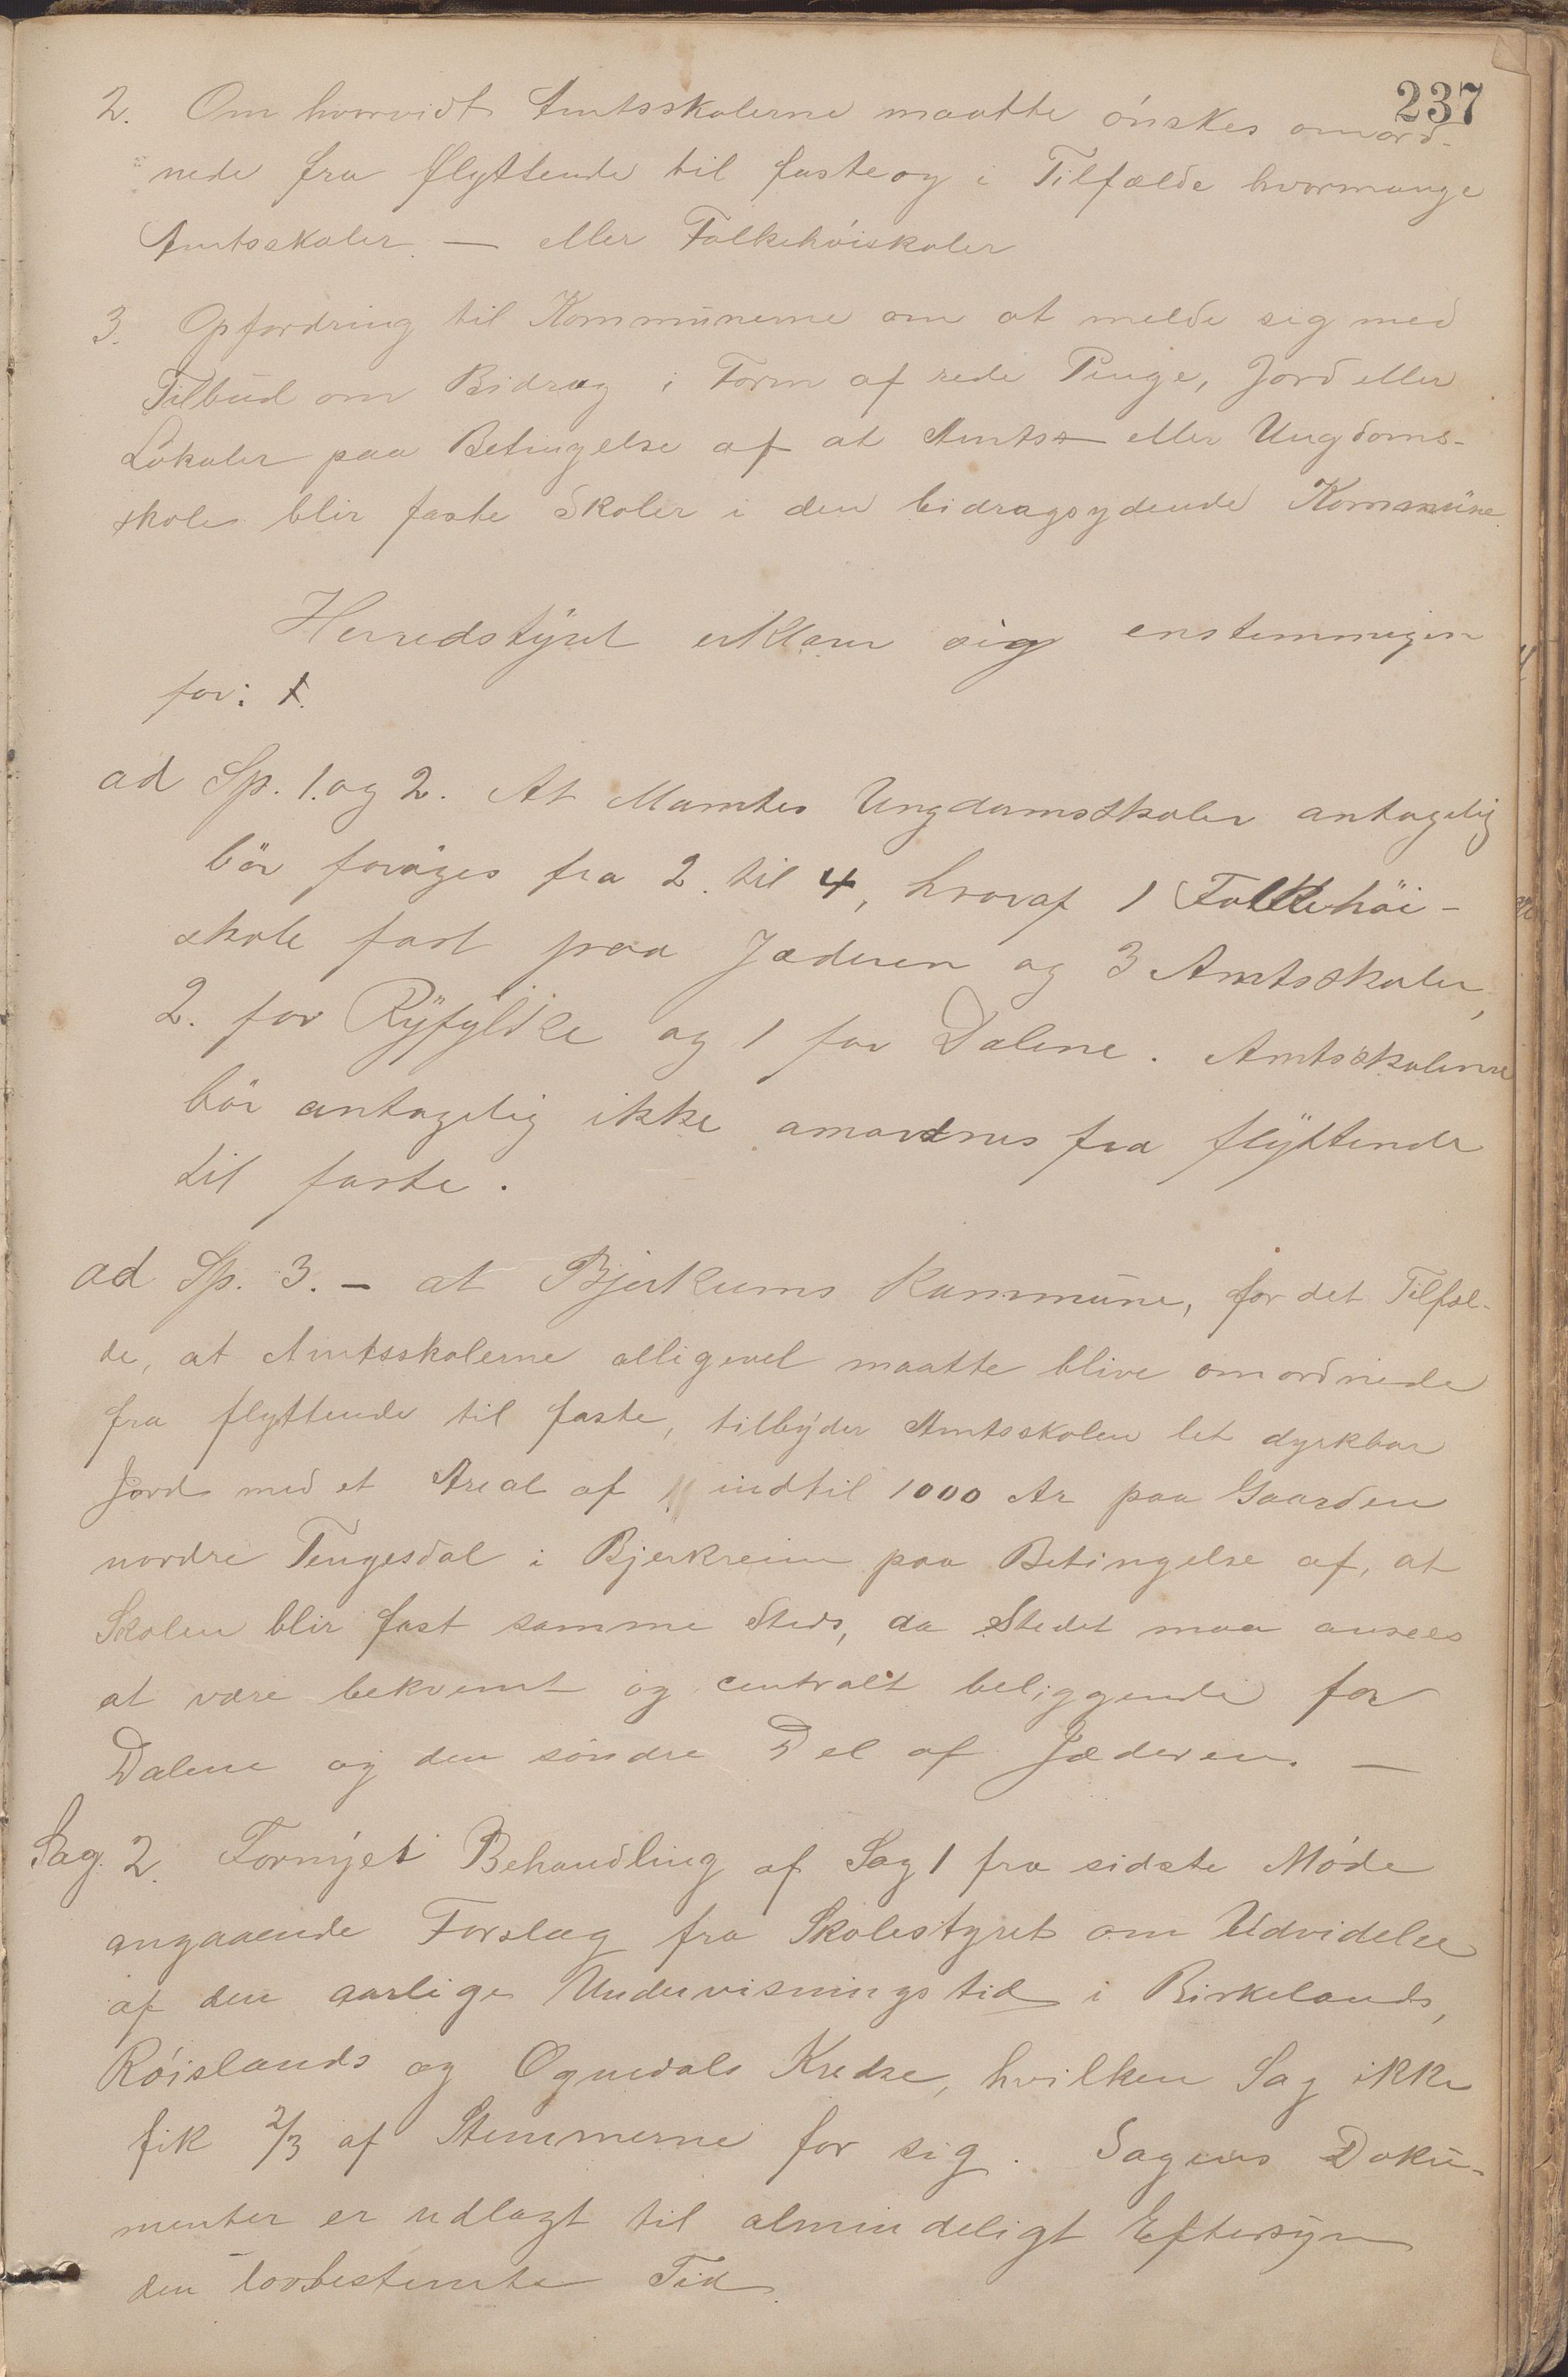 237
2. Om hvorvidt Amtsskolerne maatte ønskes omord-
nede fra flyttende til faste og i Tilfælde hvormange
Amtsskoler — eller Folkehøiskoler
3. Opfordring til Kommunerne om at melde sig med
Tilbud om Bidrag i Form af rede Penge, Jord eller
Lokaler paa Betingelse af at Amts- eller Ungdoms-
skoler blir faste Skoler i den bidragsydende Kommune.
Herredstyret erklærer sig enstemmigen
for:
ad Sp. 1. og 2. At Mamtes Ungdomsskoler antagelig
bør forøges fra 2 til 4, hvoraf 1 Folkehøi-
skole fast paa Jæderen og 3 Amtsskoler,
2. for Ryfylke og 1 for Dalene. Amtsskolerne
bør antagelig ikke omordnes fra flyttende
til faste.
ad Sp. 3. — at Bjerkrems Kommune, for det Tilfæl-
de, at Amtsskolerne alligevel maatte blive omordnede
fra flyttende til faste, tilbyder Amtsskolen let dyrkbar
Jord med et Areal af indtil 1000 Ar paa Gaarden
nordre Tengesdal i Bjerkreim paa Betingelse af, at
Skolen blir fast samme Steds, da Stedet maa ansees
at være bekvemt og centralt beliggende for
Dalene og den søndre Del af Jæderen. —
Sag. 2. Fornyet Behandling af Sag 1 fra sidste Møde
angaaende Forslag fra Skolestyret om Udvidelse
af den aarlige Undervisningstid i Birkelands,
Røislands og Ognedals Kredse, hvilken Sag ikke
fik 2/3 af Stemmerne for sig. Sagens Doku-
menter er udlagt til almindeligt Eftersyn
den lovbestemte Tid.